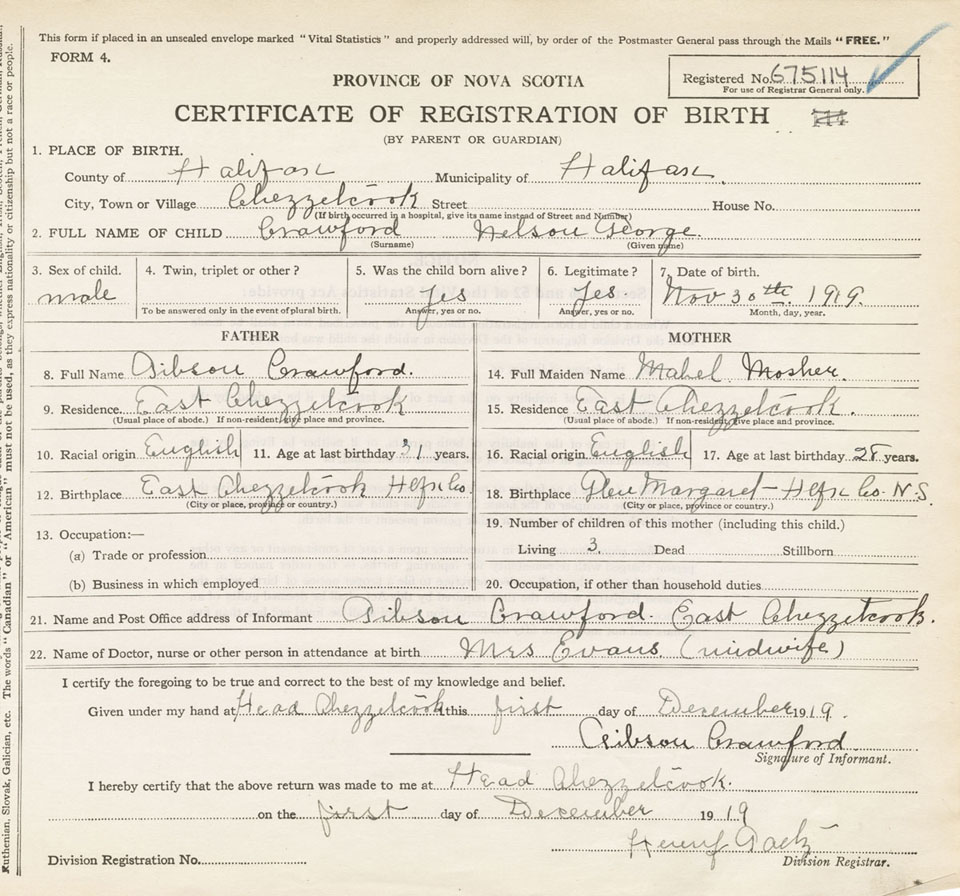 This form if placed in an unsealed envelope marked "Vital Statistics" and properly addressed will, by order of the Postmaster General pass through the Mails "FREE."
FORM 4.
Registered No. 675114
For use of Registrar General only.
PROVINCE OF NOVA SCOTIA
CERTIFICATE OF REGISTRATION OF BIRTH
(BY PARENT OR GUARDIAN)
1. PLACE OF BIRTH.
County of Halifax Municipality of Halifax
City, Town or Village Chezzetcook Street House No.
(If birth occurred in a hospital, give its name instead of Street and Number)
2. FULL NAME OF CHILD Crawford Nelson George.
(Surname) (Given name)
3. Sex of child. 4. Twin, triplet or other? 5. Was the child born alive? 6. Legitimate? 7. Date of birth.
male Yes Yes. Nov 30th. 1919.
To be answered only in the event of plural birth. Answer, yes or no. Answer, yes or no. Month, day, year.
FATHER MOTHER
8. Full Name Gibson Crawford. 14. Full Maiden Name Mabel Mosher.
9. Residence. East Chezzetcook 15. Residence East Chezzetcook.
(Usual place of abode.) If non-resident, give place and province. (Usual place of abode.) If non-resident, give place and province.
10. Racial origin English 11. Age at last birthday 31 years. 16. Racial origin English 17. Age at last birthday 28 years.
12. Birthplace East Chezzetcook Hfx Co. 18. Birthplace Glen Margaret - Hfx Co. N.S.
(City or place, province or country.) (City or place, province or country.)
13. Occupation:— 19. Number of children of this mother (including this child.)
(a) Trade or profession Living 3. Dead Stillborn
(b) Business in which employed 20. Occupation, if other than household duties
21. Name and Post Office address of Informant Gibson Crawford. East Chezzetcook.
22. Name of Doctor, nurse or other person in attendance at birth Mrs Evans (midwife)
I certify the foregoing to be true and correct to the best of my knowledge and belief.
Given under my hand at Head Chezzetcook this first day of December 1919.
Gibson Crawford
Signature of Informant.
I hereby certify that the above return was made to me at Head Chezzetcook.
on the first day of December 1919
Henry
Division Registration No. Division Registrar.
must not be used, as they express nationality or citizenship but not a race or people.
Ruthenian, Slovak, Galician, etc. The words "Canadian" or "American"